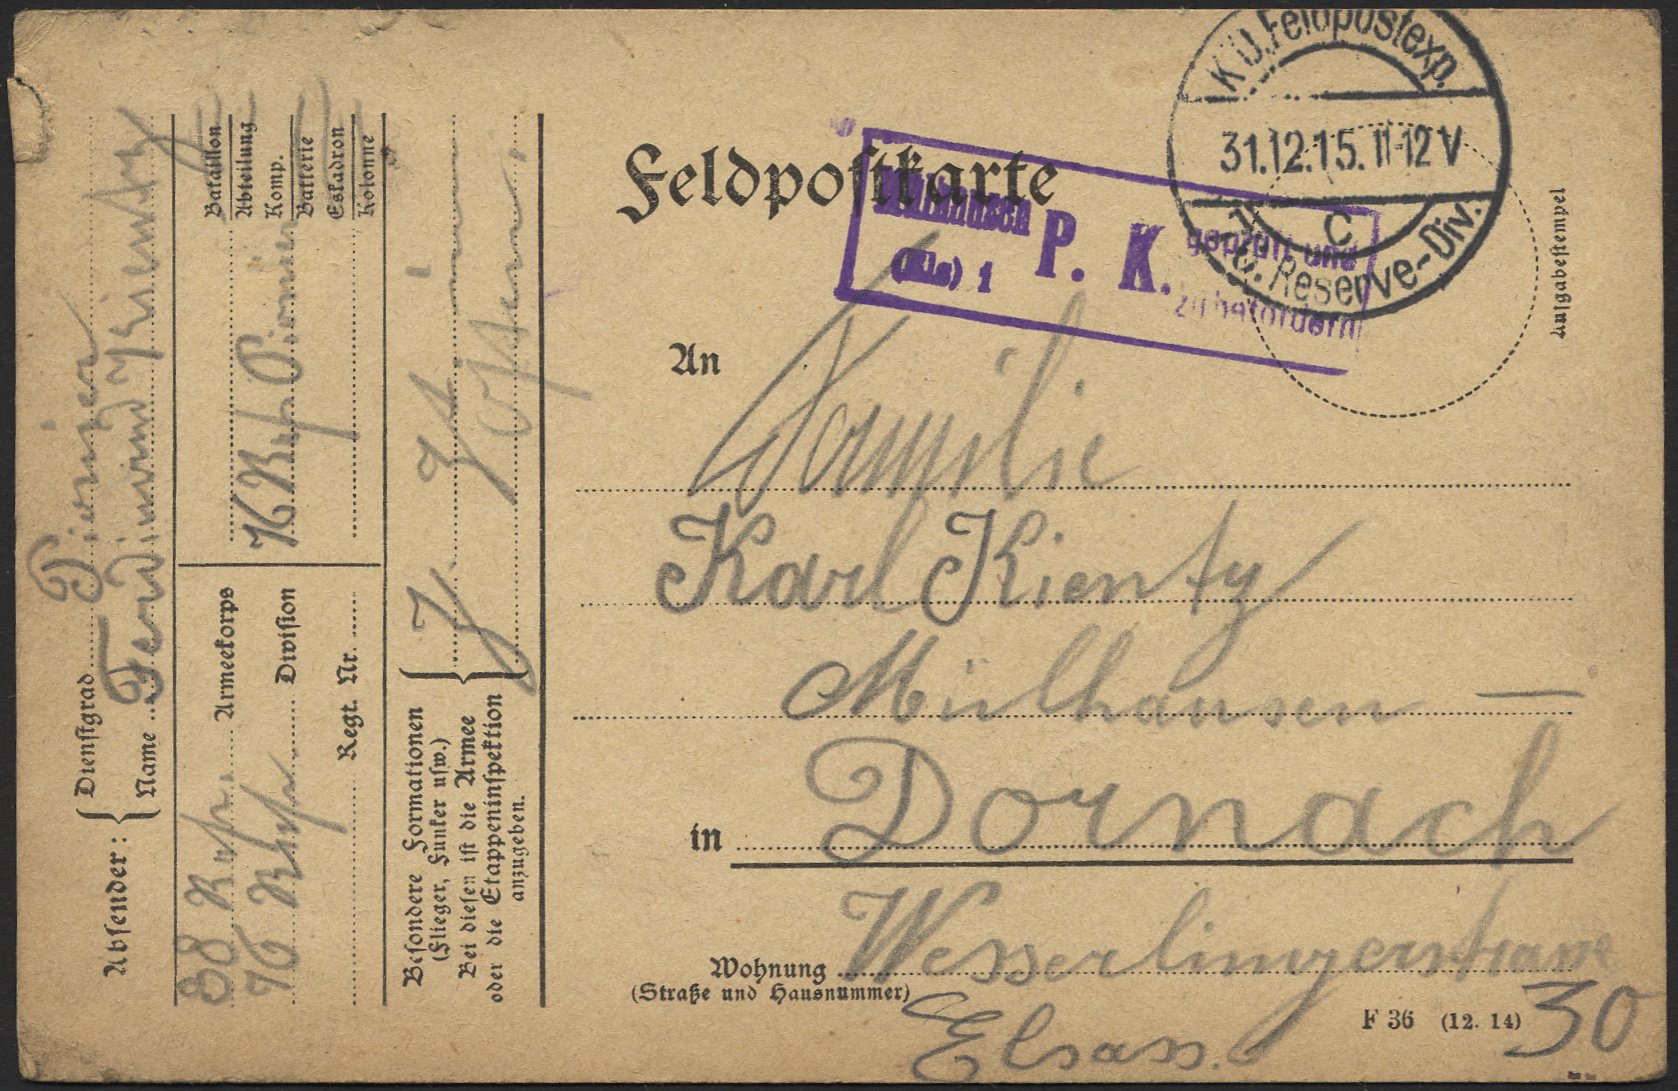 Feldpostkarte
K.D.Feldpostexp.
31.12.15.11-12V
c
76. Reserve-Div.
Mülhausen
(Els) 1
P. K.
geprüft und
zu befördern
Aufgabestempel
An
Familie
Karl Kientz
Mülhausen —
in Dornach
Wohnung Wesserlingerstrasse
(Straße und Hausnummer)
30
Elsass.
F 36 (12. 14)
Absender:
Dienstgrad Pionier
Name Ferdinand
38 Res. Armeekorps
76 Res. Division
Regt. Nr.
Bataillon
Abteilung
Komp.
Batterie
Eskadron
Kolonne
76 Res. Pionier
Besondere Formationen
(Flieger, Funker usw.)
Bei diesen ist die Armee
oder die Etappeninspektion
anzugeben.